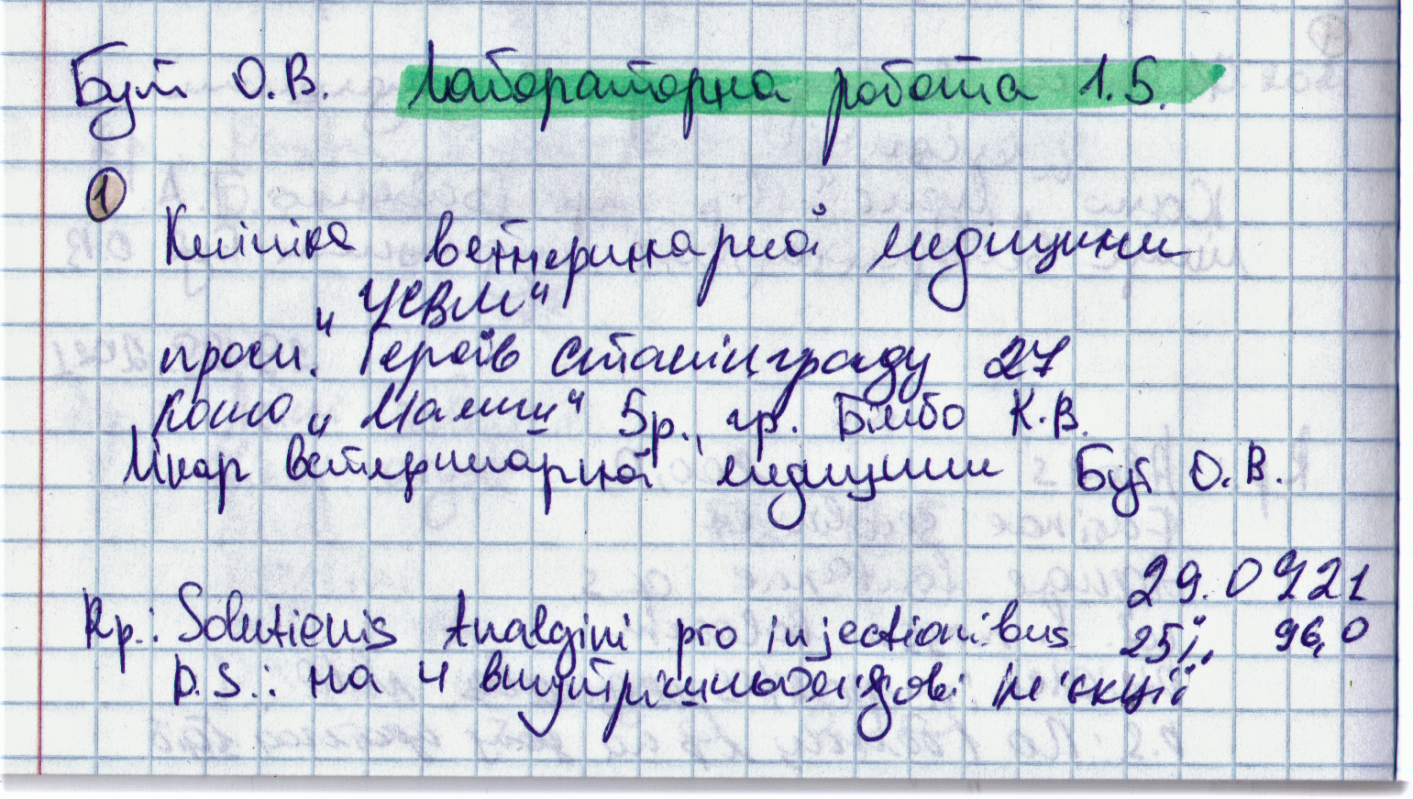 Бут О.В. Лабораторна робота 1.5.
1
Клініка ветеринарної медицини
„УСВМ“
просп. Героїв Сталінграду 27
кошо „Малиш“ 5р., гр. Бімбо К.В.
Лікар ветеринарної медицини Бут О.В.
29.0921
Rp.: Solutionis Analgini pro injectionibus 25% 96,0
D.S.: на 4 внутрішньом'язові ін'єкції